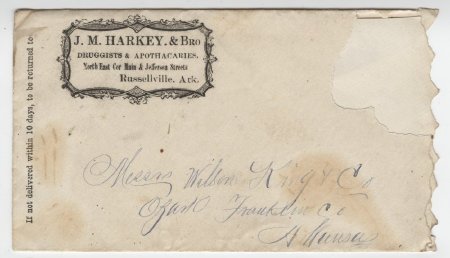 If not delivered within 10 days, to be returned to
J. M. HARKEY. & Bro
DRUGGISTS & APOTHACARIES,
North East Cor Main & Jefferson Streets
Russellville, Ark.
Messrs Wilson King & Co
Ozark Franklin Co
Arkansas